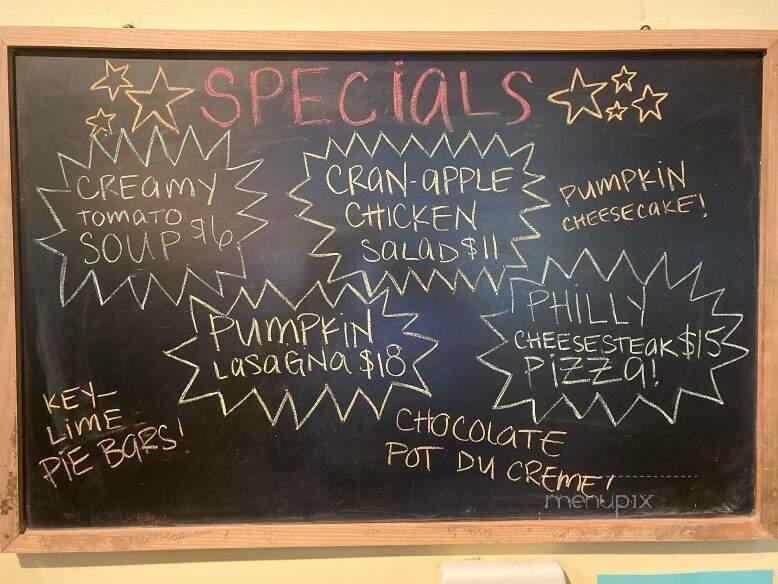 SPECIALS
CREAMY
TOMATO
SOUP $6
CRAN-APPLE
CHICKEN
SALAD $11
PUMPKIN
CHEESECAKE!
PUMPKIN
LASAGNA $18
PHILLY
CHEESESTEAK $15
PIZZA!
KEY-
LIME
PIE BARS!
CHOCOLATE
POT DU CREME!
menupix